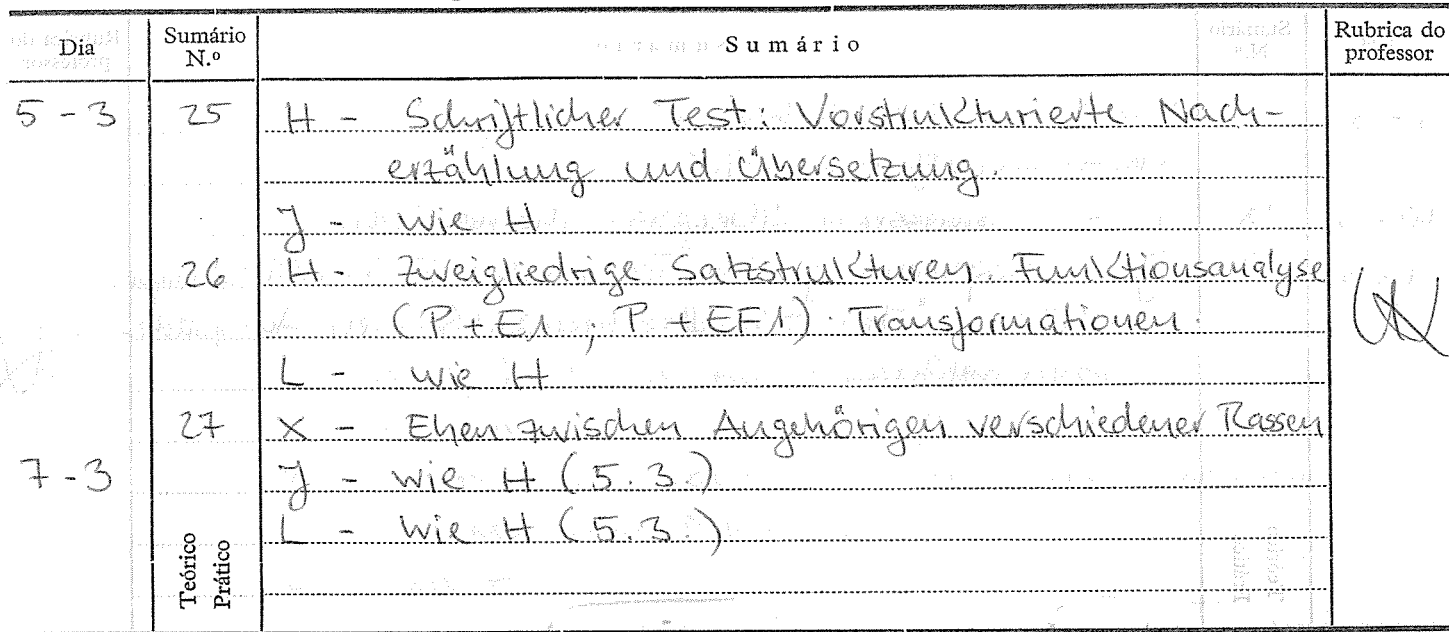 Dia Sumário N.º Sumário Rubrica do professor
5-3 25 H - Schriftlicher Test: Vorstrukturierte Nach-
erzählung und Übersetzung.
J - wie H
26 H - Zweigliedrige Satzstrukturen. Funktionsanalyse
(P + E1, P + EF1). Transformationen.
L - wie H
27 X - Ehen zwischen Angehörigen verschiedener Rassen
7-3 J - wie H (5.3.)
L - wie H (5.3.)
Teórico
Prático